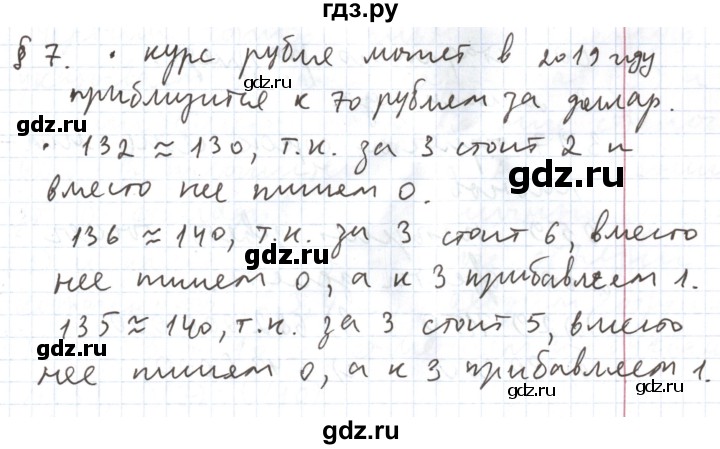 гдз.ру
§ 7. • курс рубля может в 2019 году
приблизится к 70 рублям за доллар.
gdz.ru
• 132 ≈ 130, т.к. за 3 стоит 2 и
gdz.ru
вместо нее пишем 0.
136 ≈ 140, т.к. за 3 стоит 6, вместо
gdz.ru
нее пишем 0, а к 3 прибавляем 1.
gdz.ru
135 ≈ 140, т.к. за 3 стоит 5, вместо
gdz.ru
нее пишем 0, а к 3 прибавляем 1.
gdz.ru gdz.ru
gdz.ru